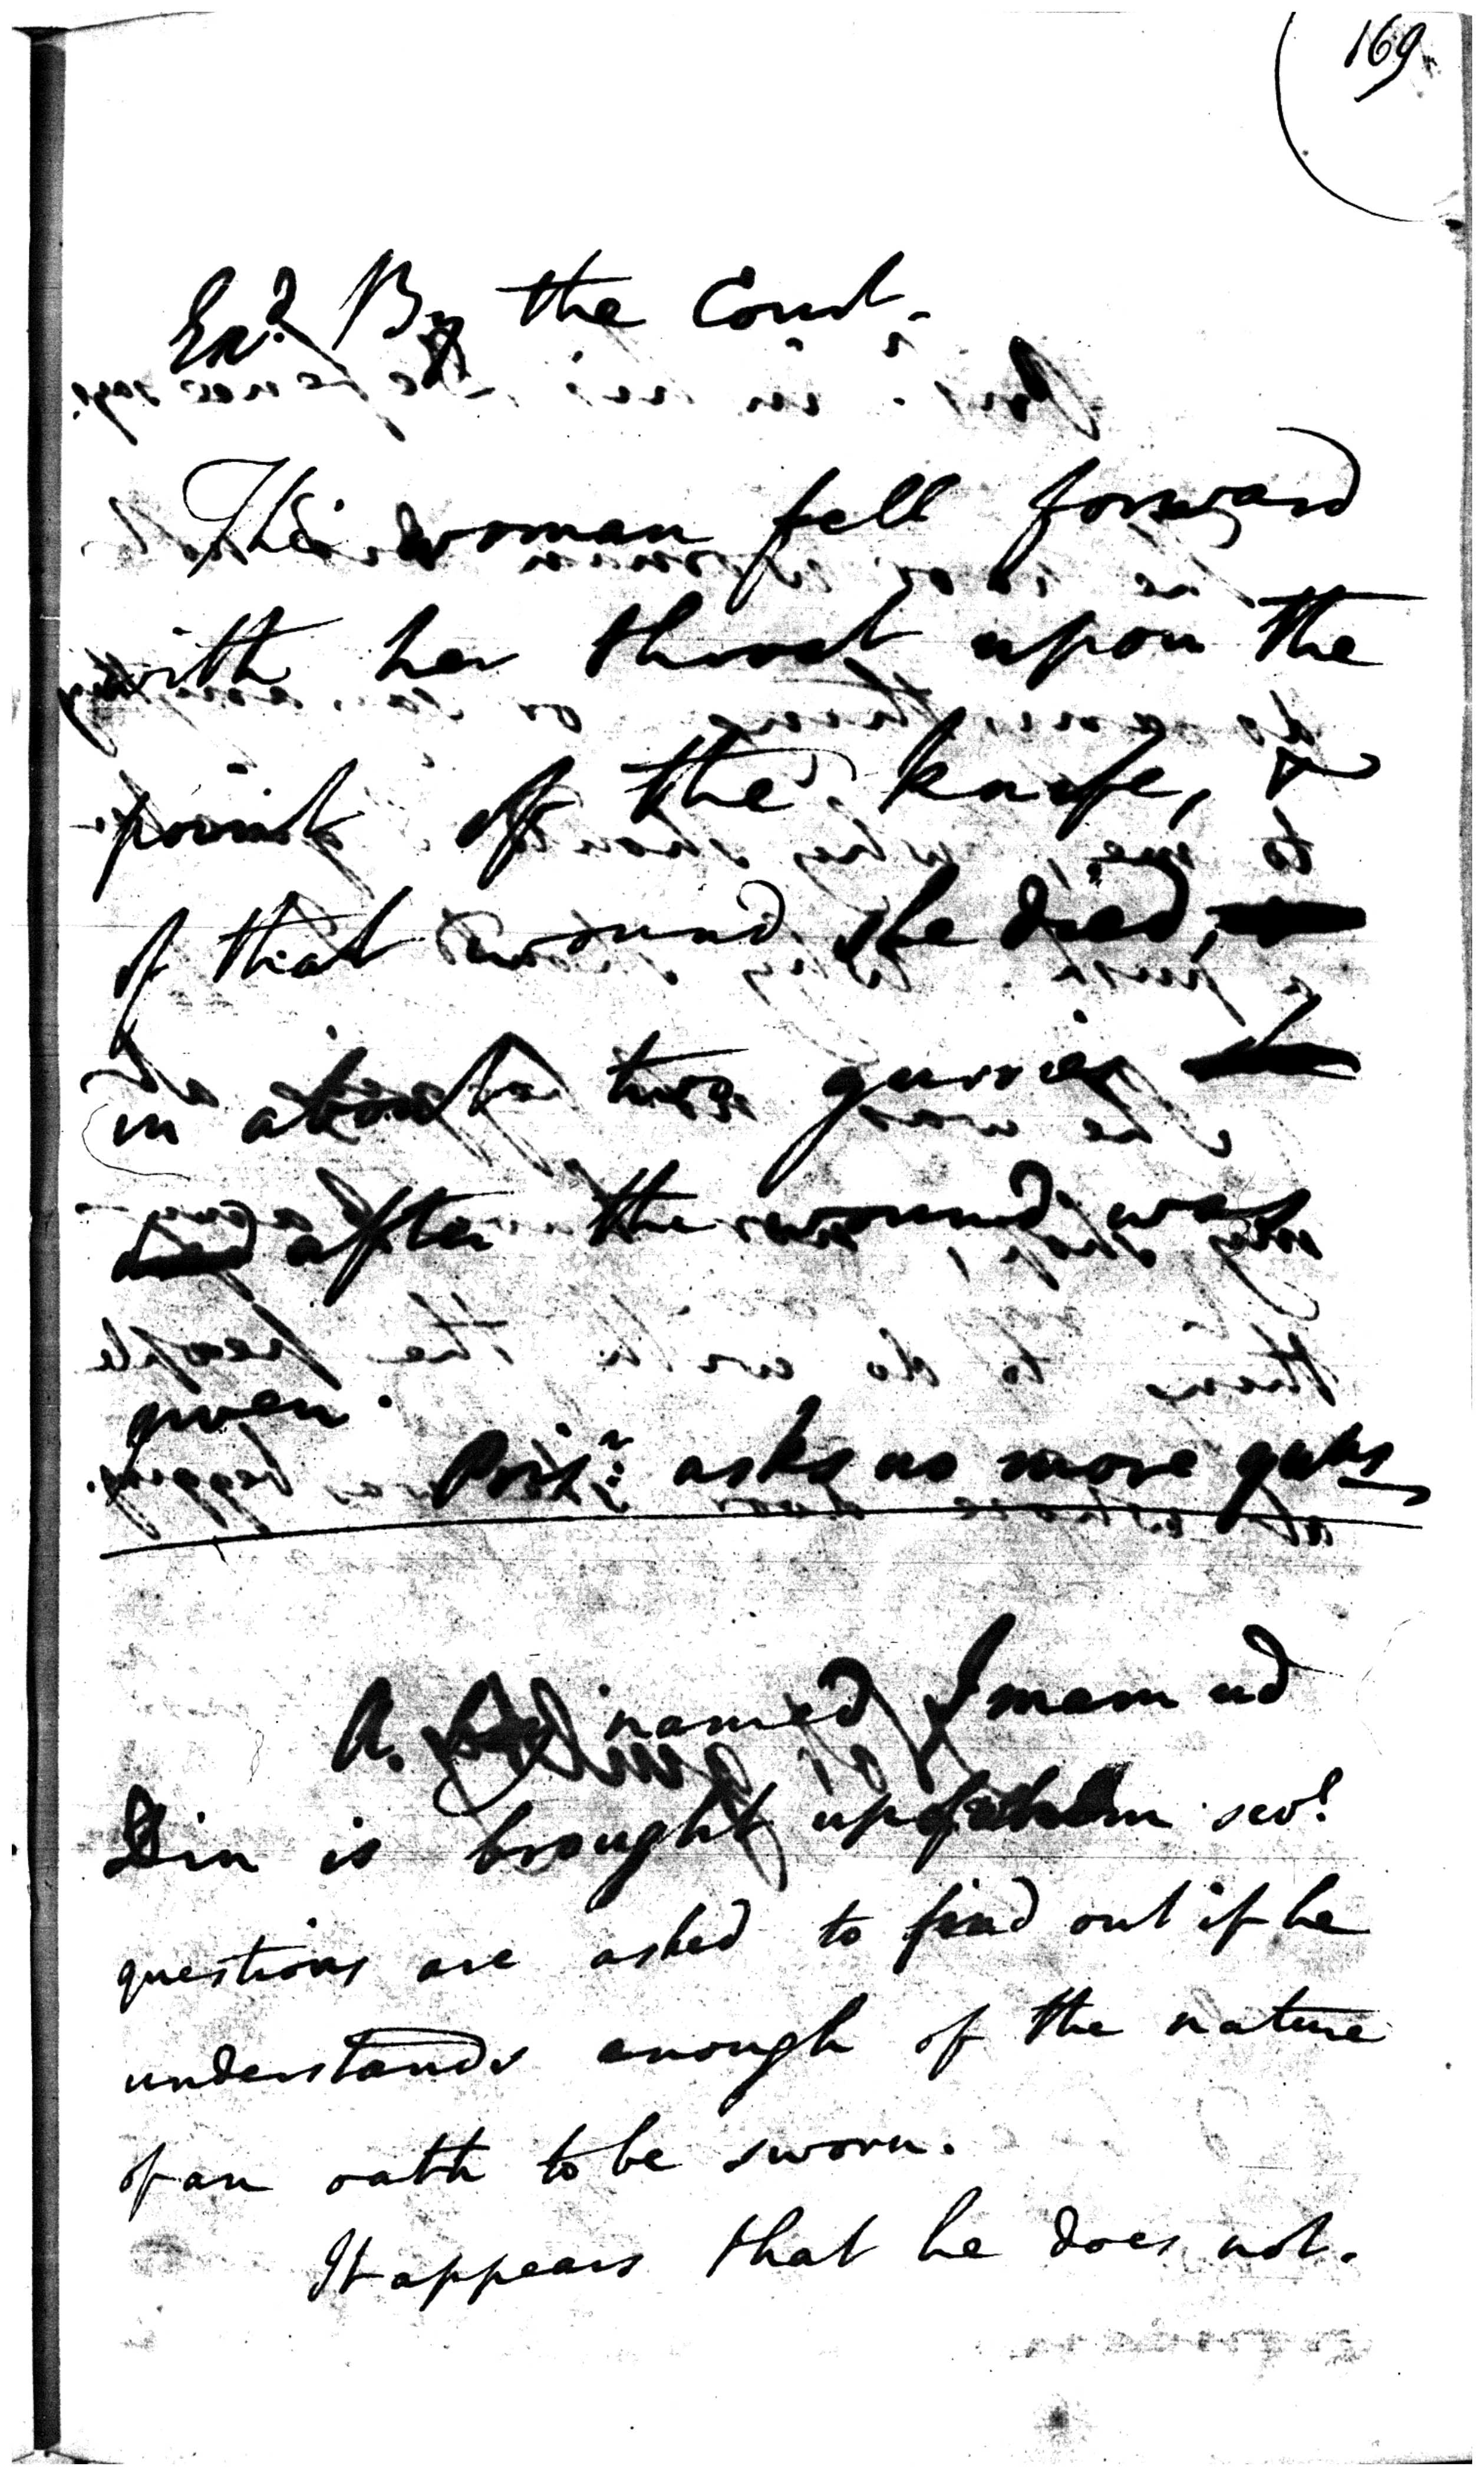 169
Exd. By the Court.
The woman fell forward
with her throat upon the
point of the knife, &
of that wound she died,
in about two gurries
after the wound was
given.
Prisr. asks no more ques
A. named Imam ud
Din is brought up sevl.
questions are asked to find out if he
understands enough of the nature
of an oath to be sworn.
It appears that he does not.